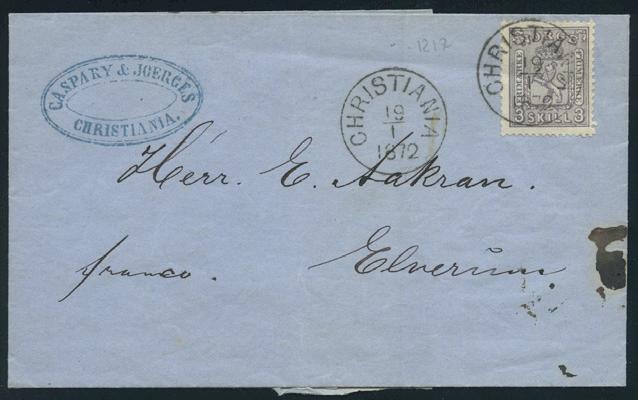 CASPARY & JOERGES
CHRISTIANIA.
1212
CHRISTIANIA
19
1
1872
CHRISTIANIA
3 SKILL 3
Herr. E. Aakran.
franco.
Elverum